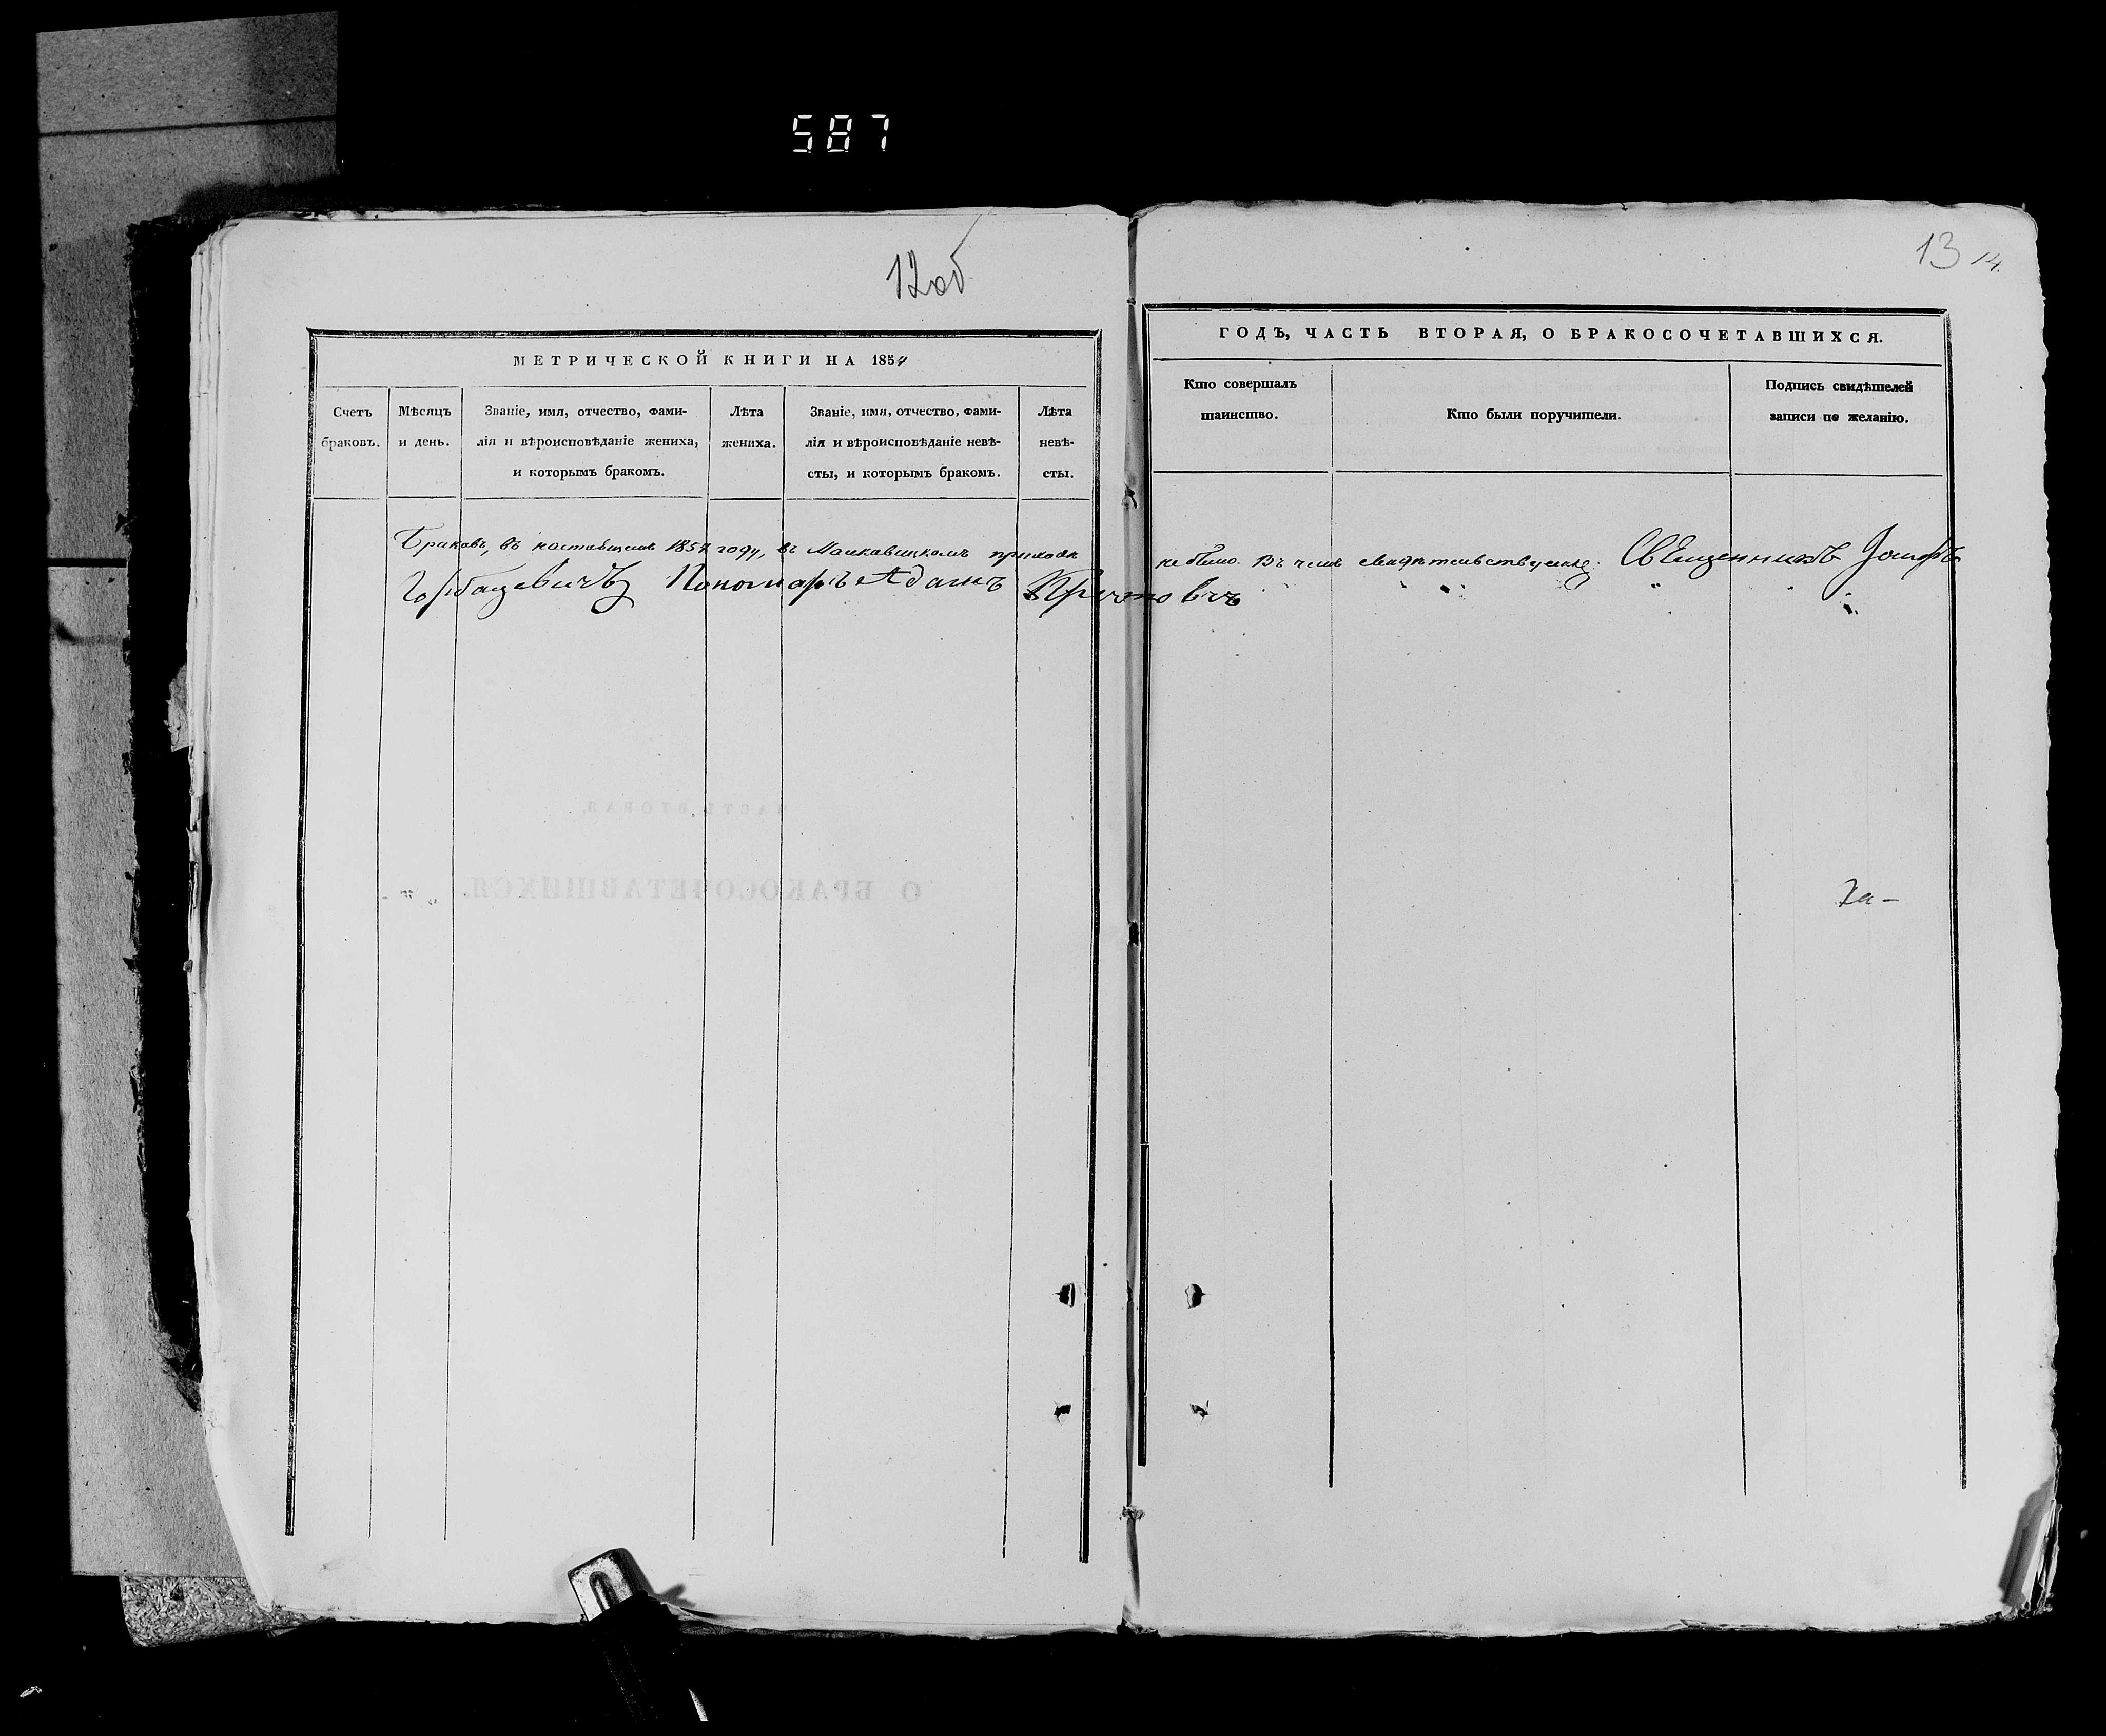 587
12об
МЕТРИЧЕСКОЙ КНИГИ НА 1854
Счетъ браковъ.
Мѣсяцъ и день.
Званіе, имя, отчество, фами-
лія и вѣроисповѣданіе жениха,
и которымъ бракомъ.
Лѣта жениха.
Званіе, имя, отчество, фами-
лія и вѣроисповѣданіе невѣ-
сты, и которымъ бракомъ.
Лѣта
невѣ-
сты.
Браковъ, въ настоящемъ 1854 году, въ приходѣ
Горбацевичъ Пономарь Адамъ
13 14.
ГОДЪ, ЧАСТЬ ВТОРАЯ, О БРАКОСОЧЕТАВШИХСЯ.
Кто совершалъ
таинство.
Кто были поручители.
Подпись свидѣтелей
записи по желанію.
не было. Въ чемъ свидѣтельствуемъ: Священникъ Іосифъ